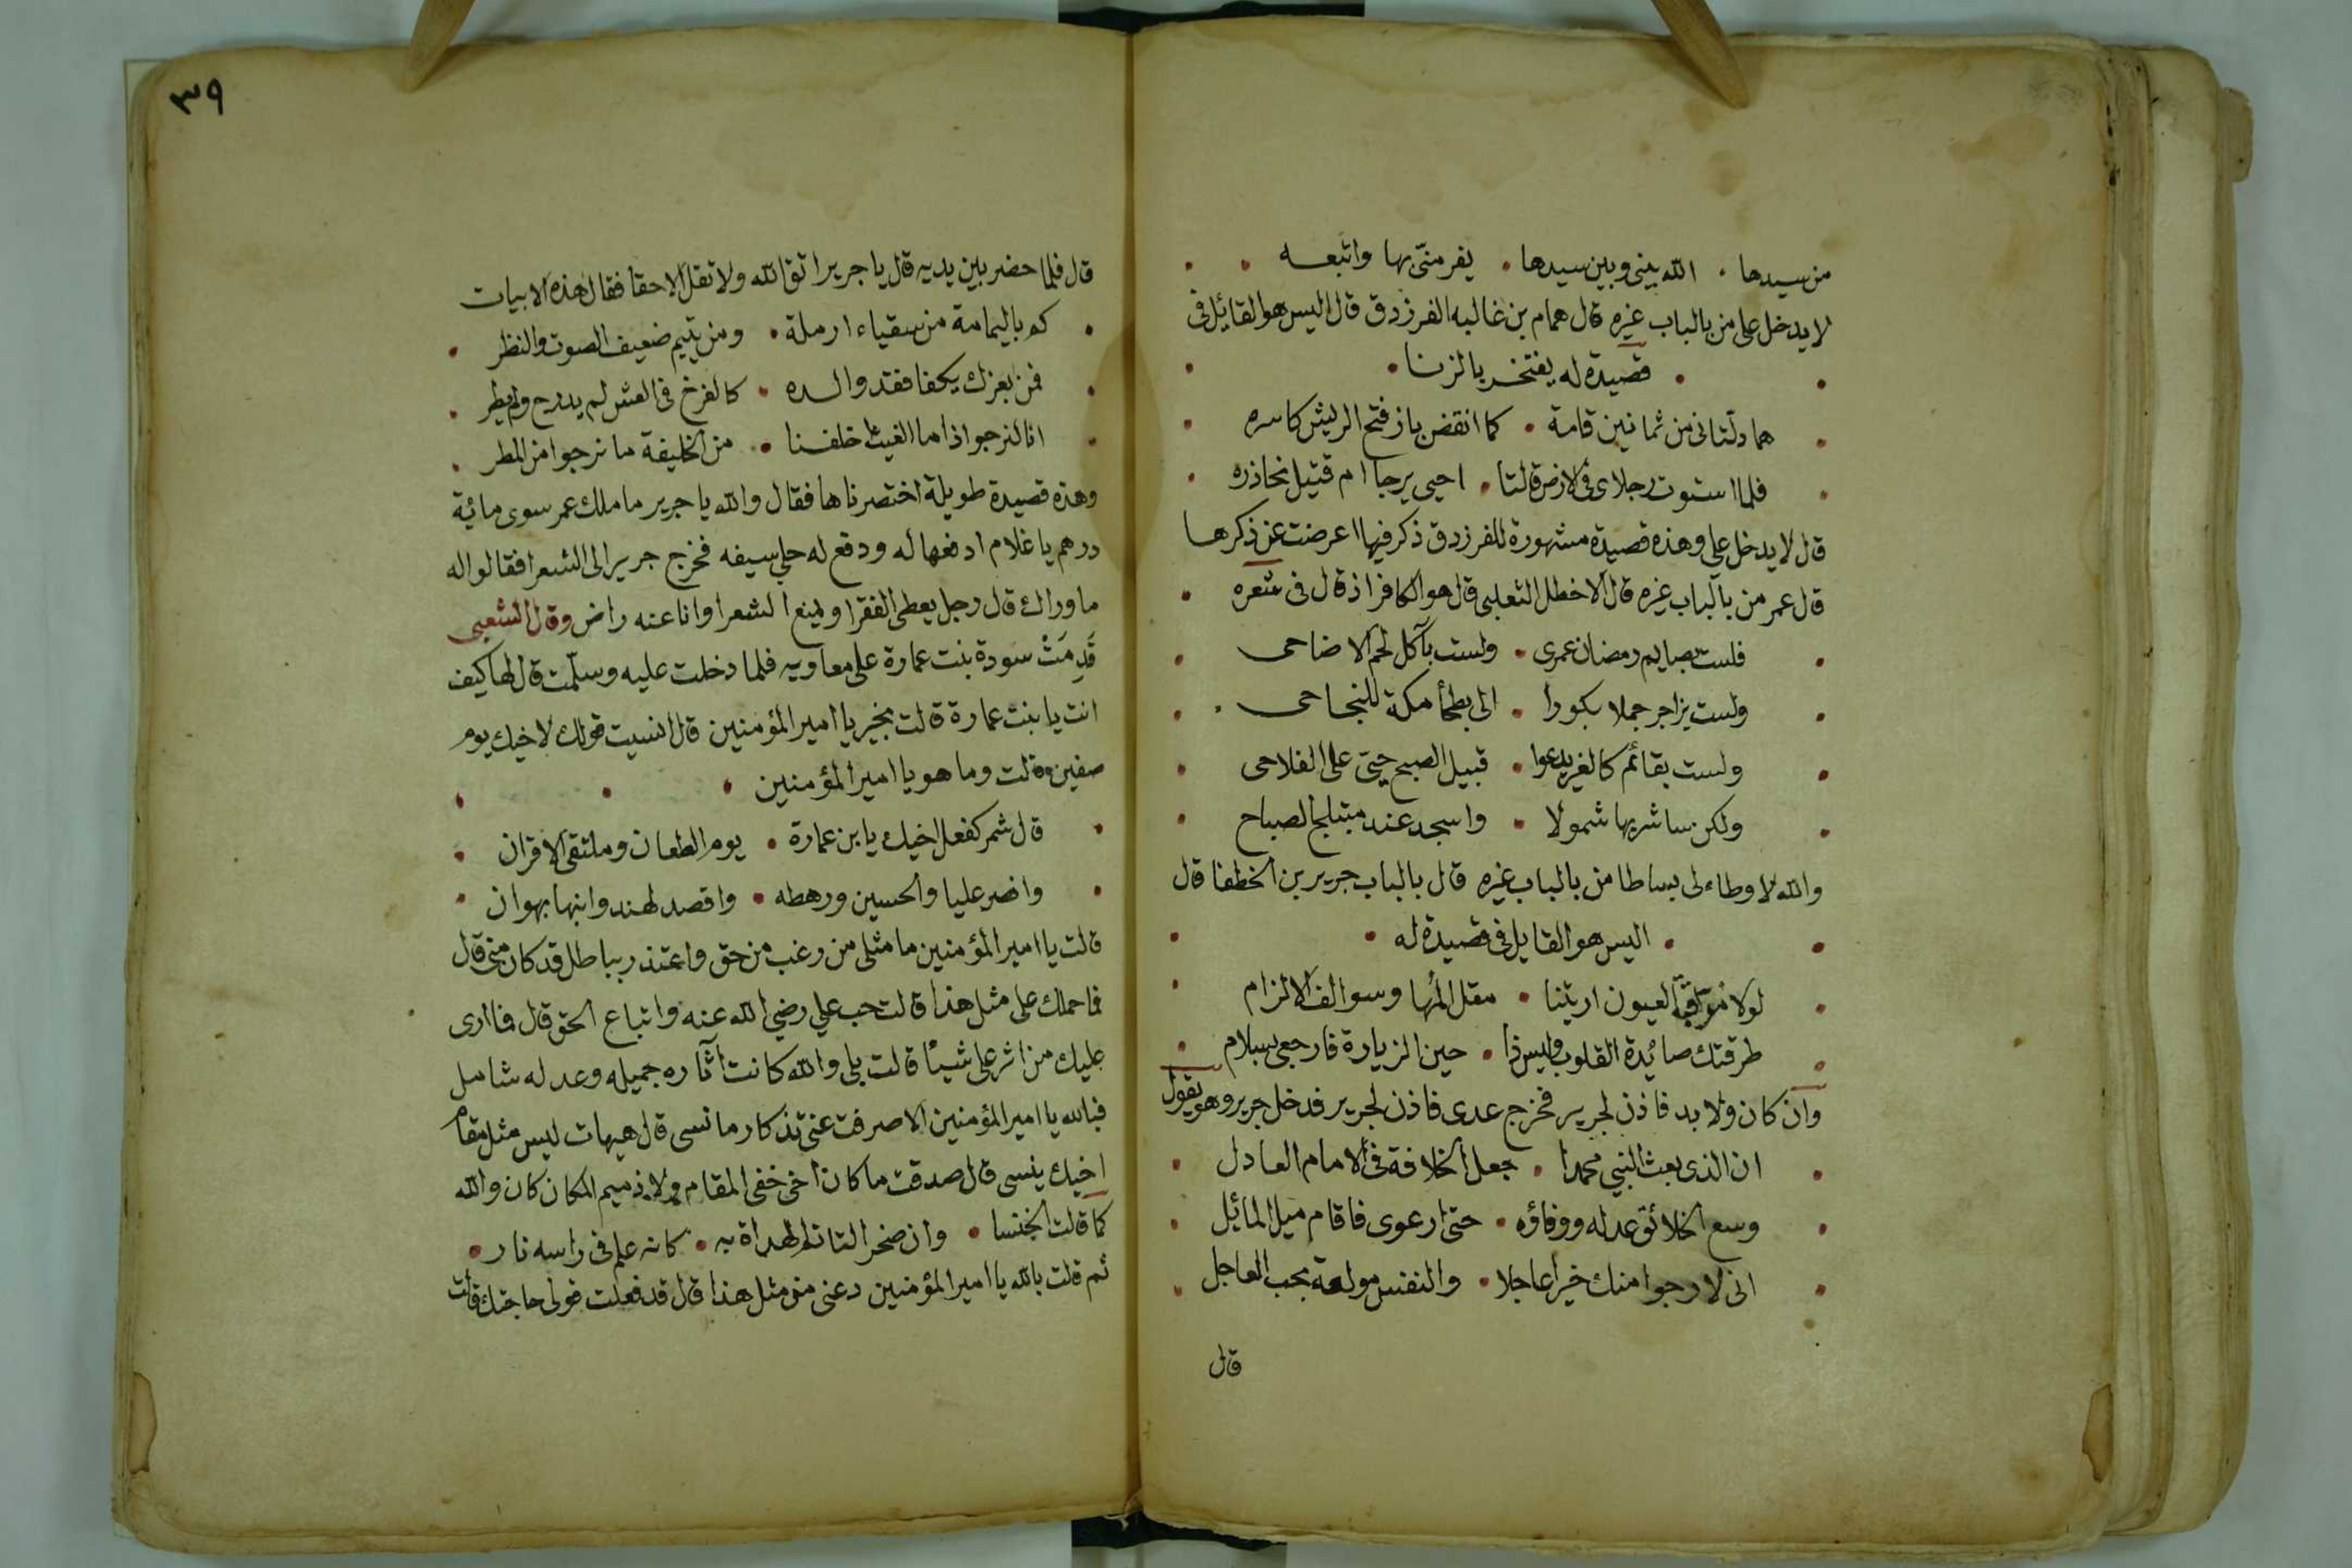 من سيدها • الله بيني وبين سيدها • يفر منّي بها واتبعــه
لا يدخل على من بالباب غيره قال همام بن غالبه الفرزدق قال اليس هو القائل فى
قصيدة له يفتخــر بالزنا
هما دلتانى من ثمانين قامة • كما انقض باز فتخ الريش كاسره
فلما استوت رجلاى فى الارض قالتا • احيى يرجا ام قتيل نحاذره
قال لا يدخل على وهذه قصيدة مشهورة للفرزدق ذكر فيها اعرضت عن ذكرها
قال عمر من بالباب غيره قال الاخطل التعلبى قال هو الكافر اذ قال فى شعره
فلست بصايم رمضان عمرى • ولست بآكل لحم الاضاحى
ولست بزاجر جملا بكورا • الى بطحأ مكة للنجاحى
ولست بقائم كالغير يدعوا • قبيل الصبح حيّ على الفلاحى
ولكن ساشربها شمولا • واسجد عند مبتلج الصباح
والله لا وطاء لى بساطا من بالباب غيره قال بالباب جرير بن الخطفا قال
اليس هو القايل فى قصيدة له
لولا مراقبة العيون اريتنا • مقل المها وسوالف الالزام
طرقتك صائدة القلوب وليس ذا • حين الزيارة فارجعى بسلام
وان كان ولا بد فاذن لجرير فخرج عدى فاذن لجرير فدخل جرير وهو يقول
ان الذى بعث النبي محمدا • جعل الخلافة فى الامام العادل
وسع الخلائق عدله ووفاؤه • حتى ارعوى فاقام ميل المائل
انى لارجوا منك خيرا عاجلا • والنفس مولعة بحب العاجل
قال
٣٩
قال فلما حضر بين يديه قال يا جرير اتق الله ولا تقل الا حقا فقال هذه الابيات
كم باليمامة من سقياء ارملة • ومن يتيم ضعيف الصوت والنظر
فمن بعزك يكفا فقد والــده • كالفرخ فى العش لم يدرج ولم يطر
انا لنرجوا اذا ما الغيث اخلفــنا • من الخليفة ما نرجوا من المطر
وهذه قصيدة طويلة اختصرناها فقال والله يا جرير ما ملك عمر سوى مائية
درهم يا غلام ادفعها له ودفع له حلى سيفه فخرج جرير الى الشعرا فقالوا له
ما وراك قال رجل يعطى الفقرا ويمنع الشعرا وانا عنه راض وقال الشعبى
قَدِمَتْ سودة بنت عمارة على معاويه فلما دخلت عليه وسلّمت قال لها كيف
انت يا بنت عمارة قالت بخير يا امير المؤمنين قال انسيت قولك لاخيك يوم
صفين قالت وما هو يا امير المؤمنين
قال شمر كفعل اخيك يا بن عمارة • يوم الطعان وملتقى الاقران
وانصر عليا والحسين ورهطه • واقصد لهند وابنها بهوان
قالت يا امير المؤمنين ما مثلى من رغب من حق واعتذر بباطل قد كان منى قال
فما حملك على مثل هذا قالت حب علي رضي الله عنه واتباع الحق قال فما ارى
عليك من اثر على شيئا قالت بلى والله كانت آثاره جميله وعدله شامل
فبالله يا امير المؤمنين الا صرفت عنى تذكار ما نسى قال هيهات ليس مثل مقام
اخيك ينسى قال صدقت ما كان اخى خفى المقام ولا ذميم المكان كان والله
كما قالت الخنسا • وان صخرا لتاتم الهداة به • كانه علم فى راسه نار •
ثم قلت بالله يا امير المؤمنين دعنى من مثل هذا قال قد فعلت قولى حاجتك قالت